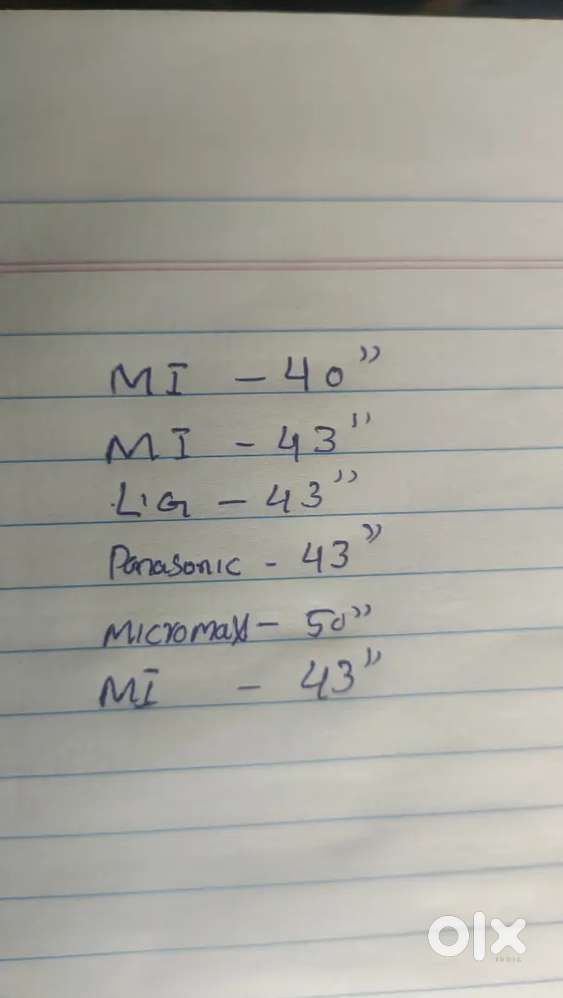 MI - 40"
MI - 43"
L'G - 43"
Panasonic - 43"
Micromax - 50"
MI - 43"
olx
INDIA